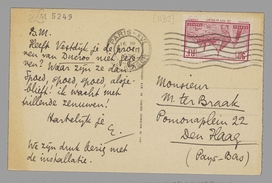 M 5249
PARIS
B.M.
Heeft Vestdijk je de proeven
van Ducroo niet gegeven?
Waar zijn ze dan?
Spoed, spoed, spoed, alsjeblieft!
ik wacht met
trillende zenuwen!
Hartelijk je
E.
We zijn druk bezig met
de installatie.
Monsieur
M. ter Braak
Pomonaplein 22
Den Haag
(Pays-Bas)